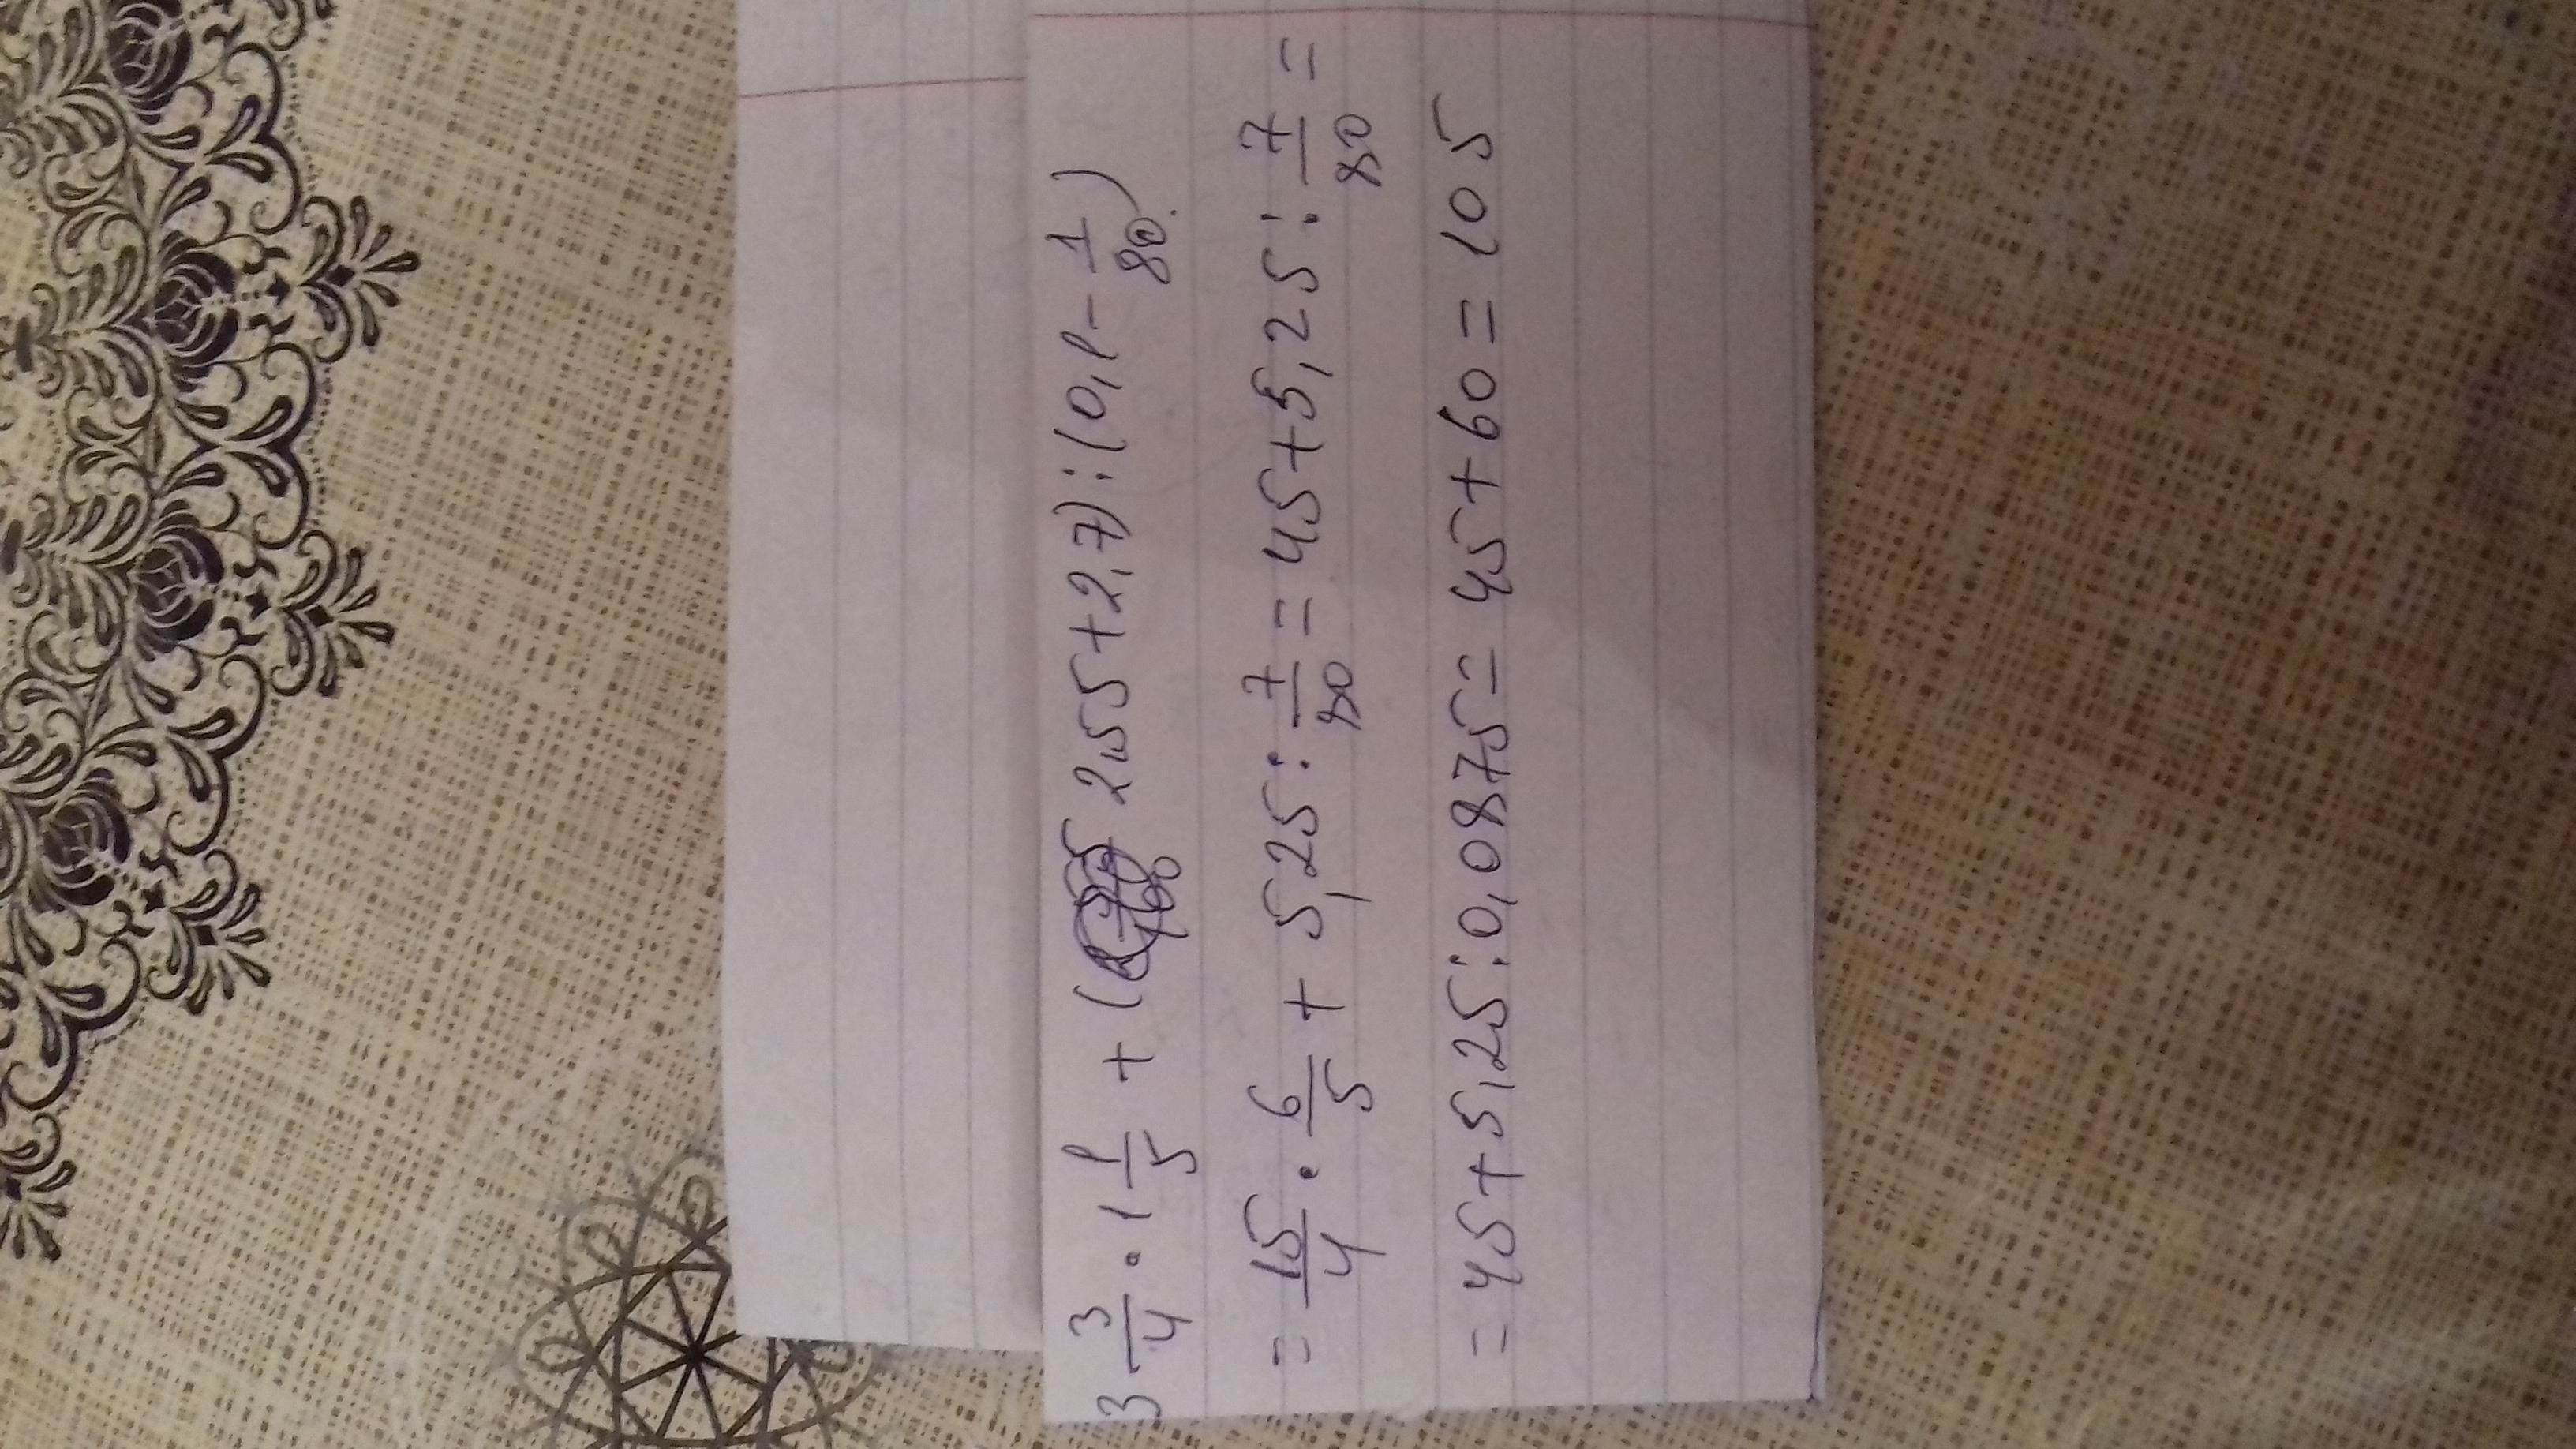 3 3/4 · 1 1/5 + (2,55+2,7):(0,1-1/80)
= 15/4 · 6/5 + 5,25 : 7/80 = 45+5,25 : 7/80 =
= 45+5,25:0,0875= 45+60=105